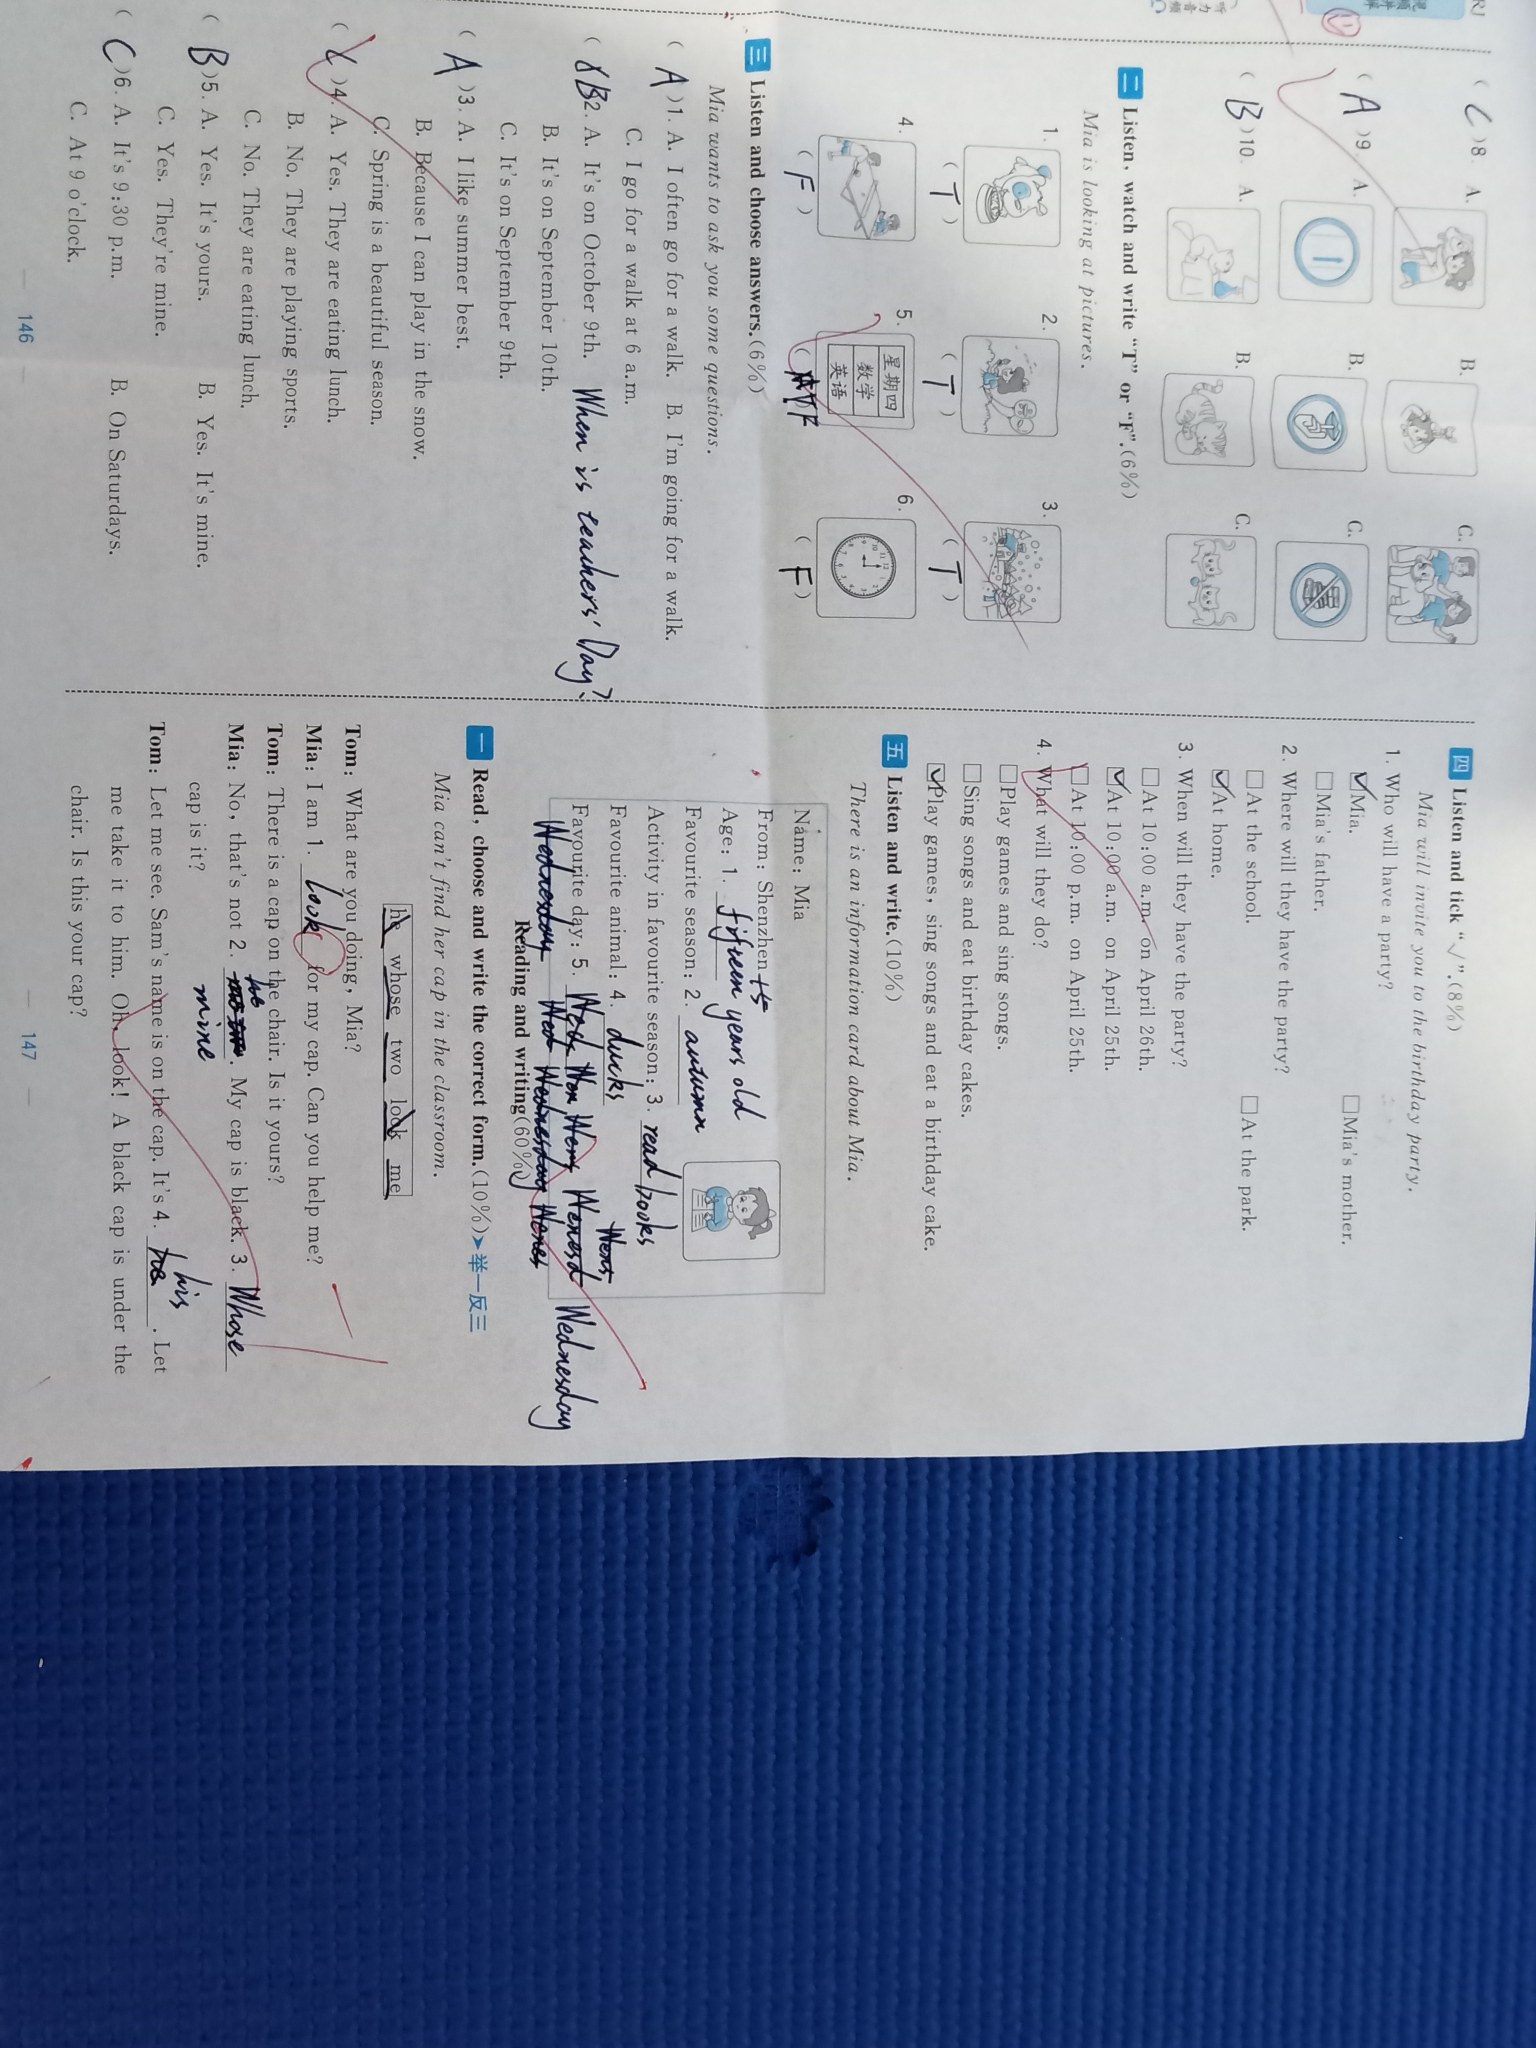 RJ
听力音频
( C )8. A. B. C.
( A )9. A. B. C.
( B )10. A. B. C.
二 Listen, watch and write “T” or “F”.(6%)
Mia is looking at pictures.
1. 2. 3.
( T ) ( T ) ( T )
4. 5. 6.
星期四
数学
英语
( F ) ( F ) ( F )
三 Listen and choose answers.(6%)
Mia wants to ask you some questions.
( A )1. A. I often go for a walk. B. I'm going for a walk.
C. I go for a walk at 6 a.m.
( B )2. A. It's on October 9th. When is teachers' Day?
B. It's on September 10th.
C. It's on September 9th.
( A )3. A. I like summer best.
B. Because I can play in the snow.
C. Spring is a beautiful season.
( )4. A. Yes. They are eating lunch.
B. No. They are playing sports.
C. No. They are eating lunch.
( B )5. A. Yes. It's yours. B. Yes. It's mine.
C. Yes. They're mine.
( C )6. A. It's 9:30 p.m. B. On Saturdays.
C. At 9 o'clock.
— 146 —
四 Listen and tick “√”.(8%)
Mia will invite you to the birthday party.
1. Who will have a party?
☑Mia. □Mia's mother.
□Mia's father.
2. Where will they have the party?
□At the school. □At the park.
☑At home.
3. When will they have the party?
□At 10:00 a.m. on April 26th.
☑At 10:00 a.m. on April 25th.
□At 10:00 p.m. on April 25th.
4. What will they do?
□Play games and sing songs.
□Sing songs and eat birthday cakes.
☑Play games, sing songs and eat a birthday cake.
五 Listen and write.(10%)
There is an information card about Mia.
Name: Mia
From: Shenzhen
Age: 1. fifteen years old
Favourite season: 2. autumn
Activity in favourite season: 3. read books
Favourite animal: 4. ducks
Favourite day: 5. Wednesday
Reading and writing(60%)
一 Read, choose and write the correct form.(10%)➤举一反三
Mia can't find her cap in the classroom.
he whose two look me
Tom: What are you doing, Mia?
Mia: I am 1. look for my cap. Can you help me?
Tom: There is a cap on the chair. Is it yours?
Mia: No, that's not 2. mine. My cap is black. 3. Whose
cap is it?
Tom: Let me see. Sam's name is on the cap. It's 4. his. Let
me take it to him. Oh, look! A black cap is under the
chair. Is this your cap?
— 147 —